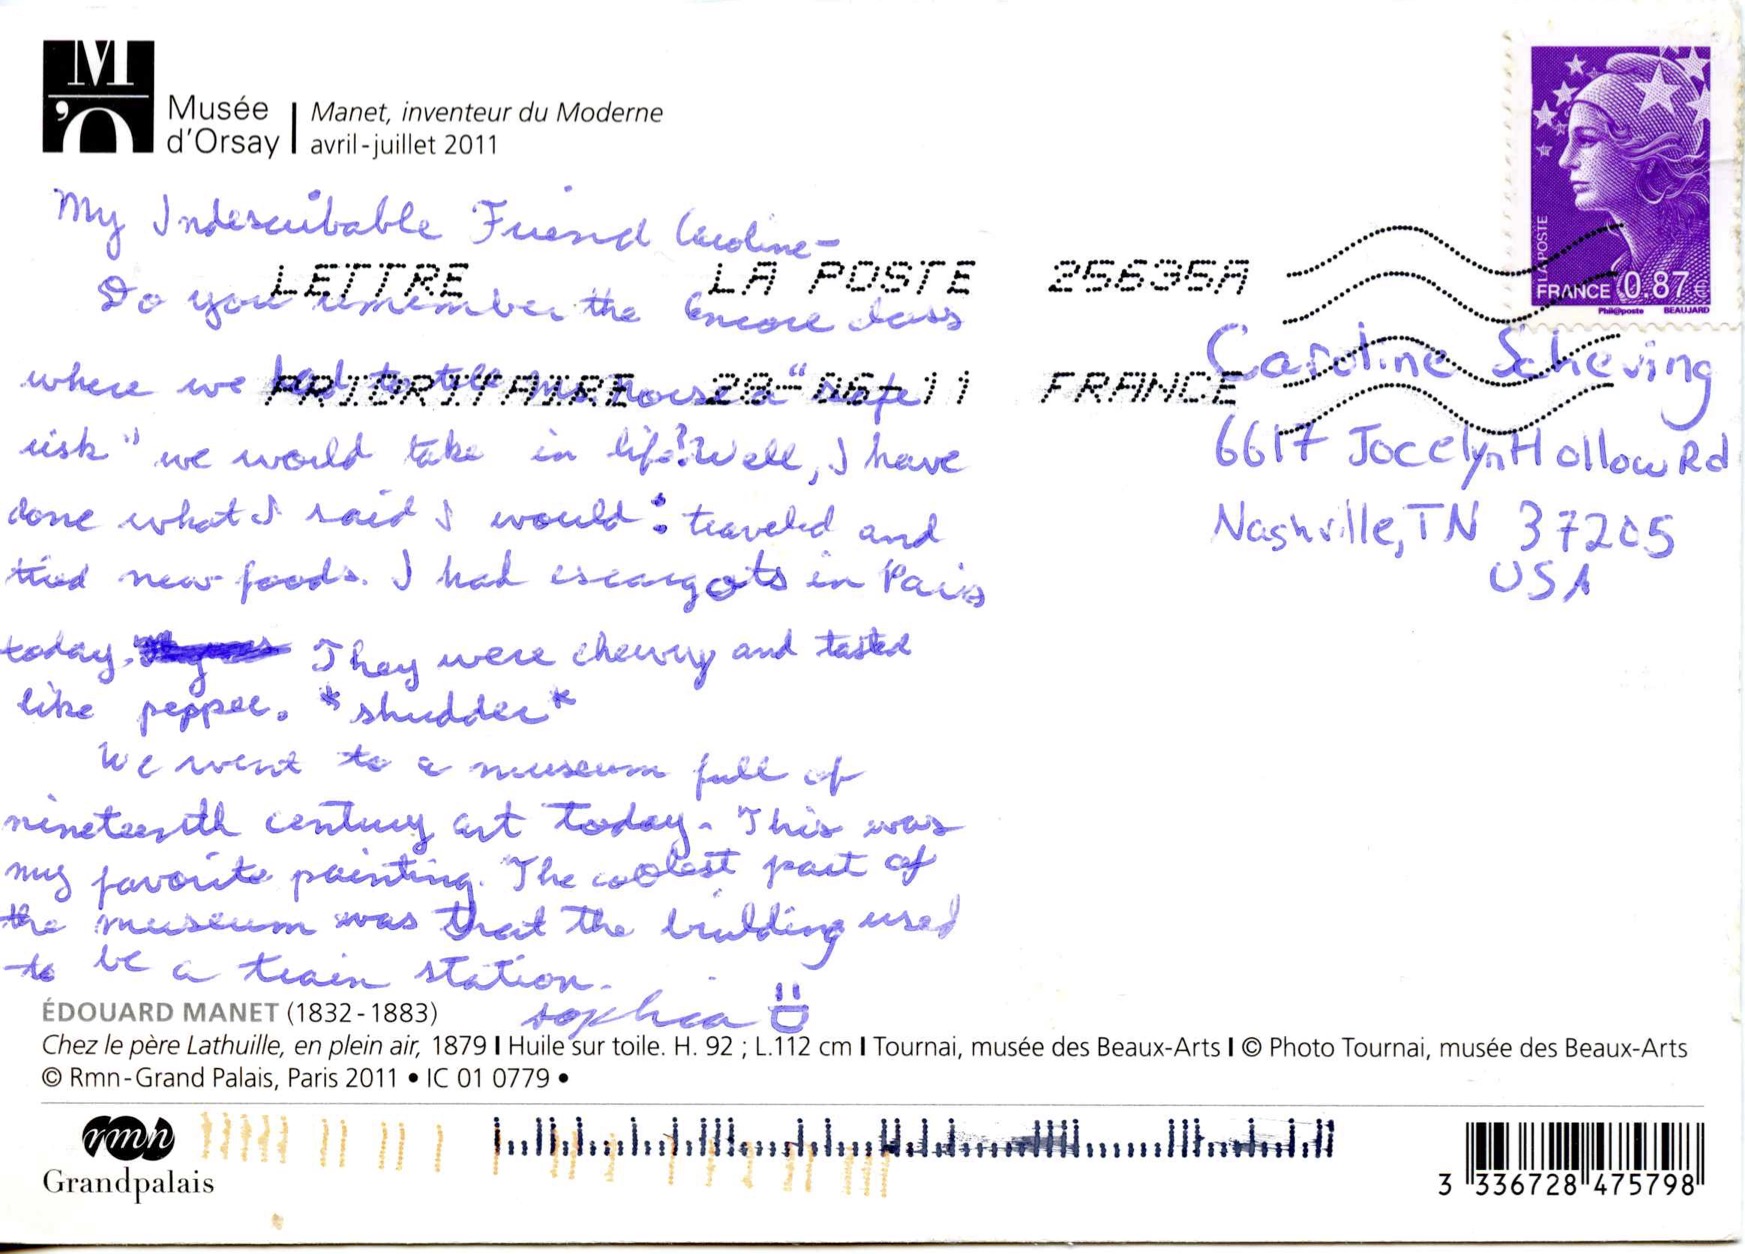 M
'O
Musée
d'Orsay
Manet, inventeur du Moderne
avril-juillet 2011
LA POSTE
FRANCE 0.87 €
Phil@poste BEAUJARD
My Indescribable Friend Caroline-
Do you remember the Encore class
where we had to tell Ms. Morse a "safe
risk" we would take in life? Well, I have
done what I said I would: traveled and
tried new foods. I had escargots in Paris
today. They were chewy and tasted
like pepper. *shudder*
We went to a museum full of
nineteenth century art today. This was
my favorite painting. The coolest part of
the museum was that the building used
to be a train station.
sophia
LETTRE LA POSTE 25635A
PRIORITAIRE 28-06-11 FRANCE
Caroline Scheving
6617 Jocelyn Hollow Rd
Nashville, TN 37205
USA
ÉDOUARD MANET (1832-1883)
Chez le père Lathuille, en plein air, 1879 I Huile sur toile. H. 92 ; L.112 cm I Tournai, musée des Beaux-Arts I © Photo Tournai, musée des Beaux-Arts
© Rmn-Grand Palais, Paris 2011 • IC 01 0779 •
rmn
Grandpalais
3 336728 475798